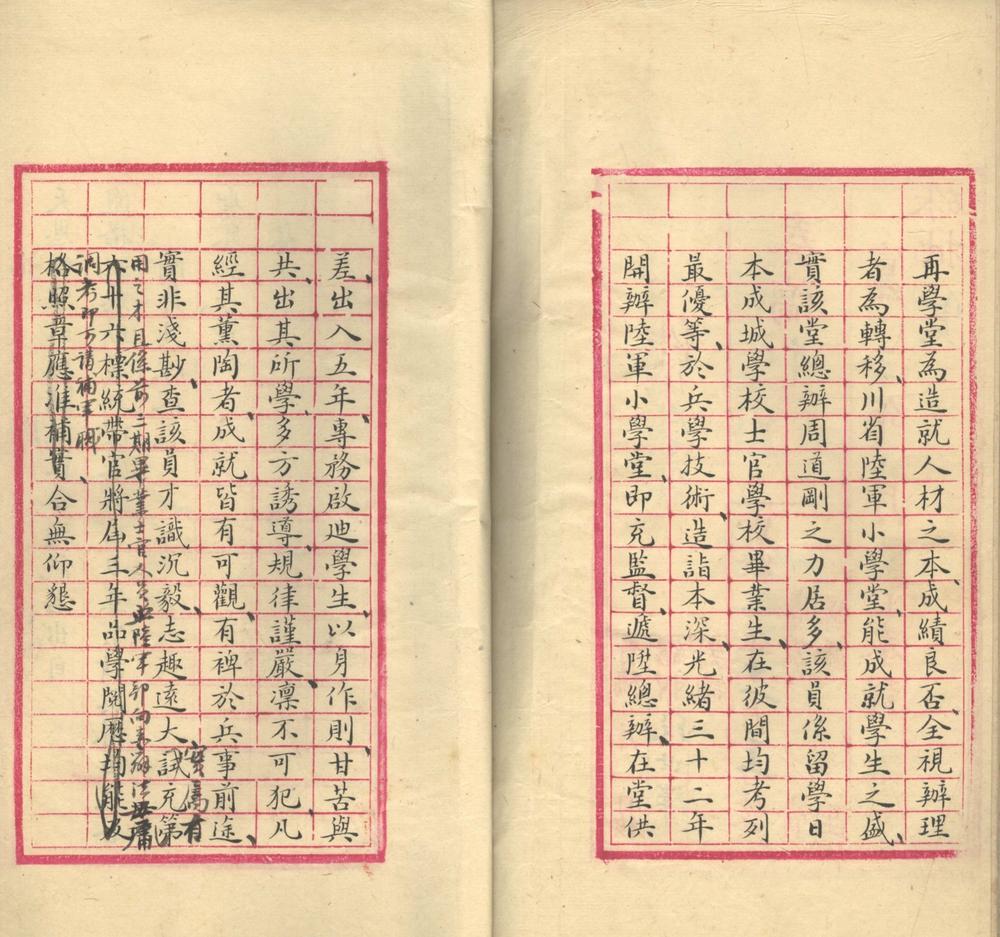 再學堂為造就人材之本、成績良否、全視辦理
者為轉移、川省陸軍小學堂、能成就學生之盛、
實該堂總辦周道剛之力居多、該員係留學日
本成城學校士官學校畢業生、在彼間均考列
最優等、於兵學技術、造詣本深、光緒三十二年
開辦陸軍小學堂、即充監督、遞陞總辦、在堂供
差、出入五年、專務啟迪學生、以身作則、甘苦與
共、出其所學、多方誘導、規律謹嚴、凜不可犯、凡
經其薰陶者、成就皆有可觀、有裨於兵事前途、
實為有
實非淺尠、查該員才識沉毅、志趣遠大、試充第
用之才且係前二期畢業士官人員照陸軍部向來辦法毋庸
六十六標統帶官將屆三年品學閱歷均能及
調考即可請補軍職
格照章應准補實、合無仰懇